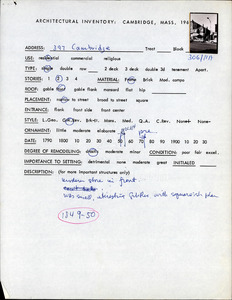 ARCHITECTURAL INVENTORY: CAMBRIDGE, MASS, 196
ADDRESS: 397 Cambridge Tract Block
USE: residential commercial religious
TYPE: single double row 2 deck 3 deck double 3d tenement Apart.
STORIES: 1 2 3 4 MATERIAL: Frame Brick Med. compo
ROOF: gable flat gable flank mansard flat hip
PLACEMENT: narrow to street broad to street square
ENTRANCE: flank front center front side
STYLE: L.Geo. Gk.Rev. Br-It. Mans. Med. Q.A. C.Rev. None
ORNAMENT: little moderate elaborate
DATE: 1790 1800 10 20 30 40 50 60 70 80 90 1900 10 20 30
DEGREE OF REMODELING: drastic moderate minor CONDITION: poor fair excel.
IMPORTANCE TO SETTING: detrimental none moderate great INITIALED
DESCRIPTION: (for more important structures only)
modern store in front.
was small, with squarish plan
1849-50